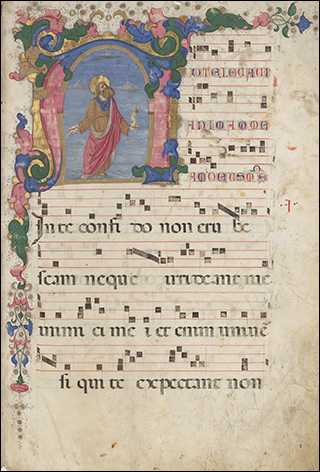 DTELEVAVI
ANIMAMME
AMDEUSMS
In te confi do non eru be
scam neque irrideant me
inimici me i et enim univer
si qui te expectant non